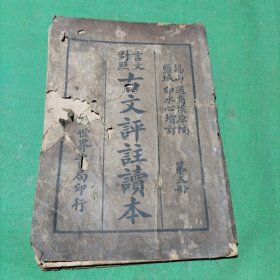 錫山過商侯原編
鹽城印水心增訂
第五册
言文
對照
古文評註讀本
世界書局印行